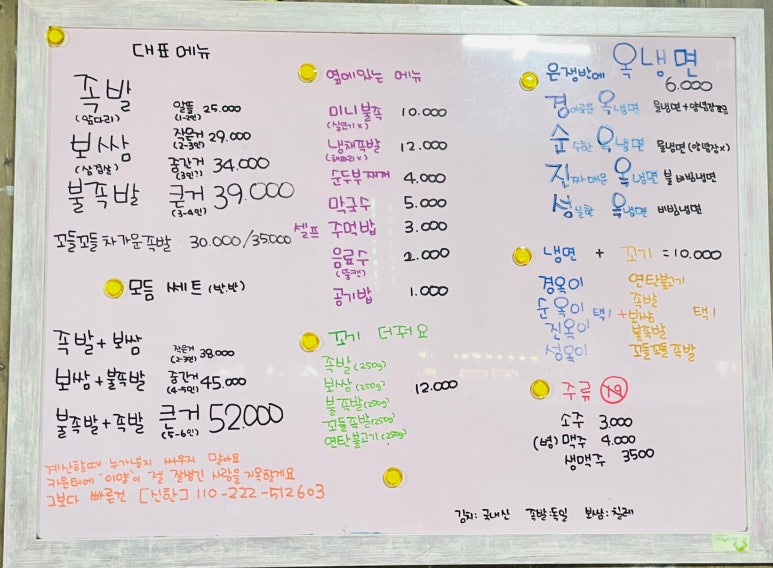 대표 메뉴
족발
(앞다리)
보쌈
(삼겹살)
불족발
알뜰 25.000
(1-2인)
작은거 29.000
(2-3인)
중간거 34.000
(3인?)
큰거 39.000
(3-4인)
꼬들꼬들 차가운족발 30.000/35.000
모듬 쎄트 (반.반)
족발 + 보쌈 작은거 38.000
(2-3인)
보쌈 + 불족발 중간거 45.000
(4-5인)
불족발 + 족발 큰거 52.000
(5-6인)
계산할때 누가낼지 싸우지 말아요
카운터에 "이양"이 젤 잘생긴 사람을 지목할게요
그보다 빠른건 [신한] 110-222-512603
옆에있는 메뉴
미니불족 10.000
냉채족발 12.000
(해파리x)
순두부찌개 4.000
막국수 5.000
셀프 주먹밥 3.000
음료수 2.000
(뚱캔)
공기밥 1.000
꼬기 더줘요
족발 (250g)
보쌈 (250g)
불족발 (250g)
꼬들족발 (250g)
연탄불고기 (250g)
12.000
은쟁반에 옥냉면
6.000
경이로운 옥냉면 물냉면+양념장
순수한 옥냉면 물냉면 (양념장x)
진짜매운 옥냉면 불비빔냉면
성실한 옥냉면 비빔냉면
냉면 + 꼬기 = 10.000
경옥이
순옥이
진옥이
성옥이
택1 +
연탄불고기
족발
보쌈
불족발
꼬들꼬들 족발
택1
주류 19
소주 3.000
(병) 맥주 4.000
생맥주 3500
김치: 국내산 족발: 독일 보쌈: 칠레